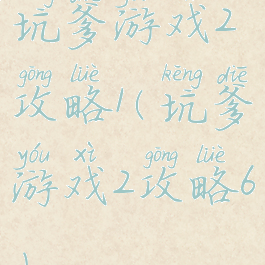 坑爹游戏2
gōng lüè kēng diē
攻略1(坑爹
yóu xì gōng lüè
游戏2攻略6
)